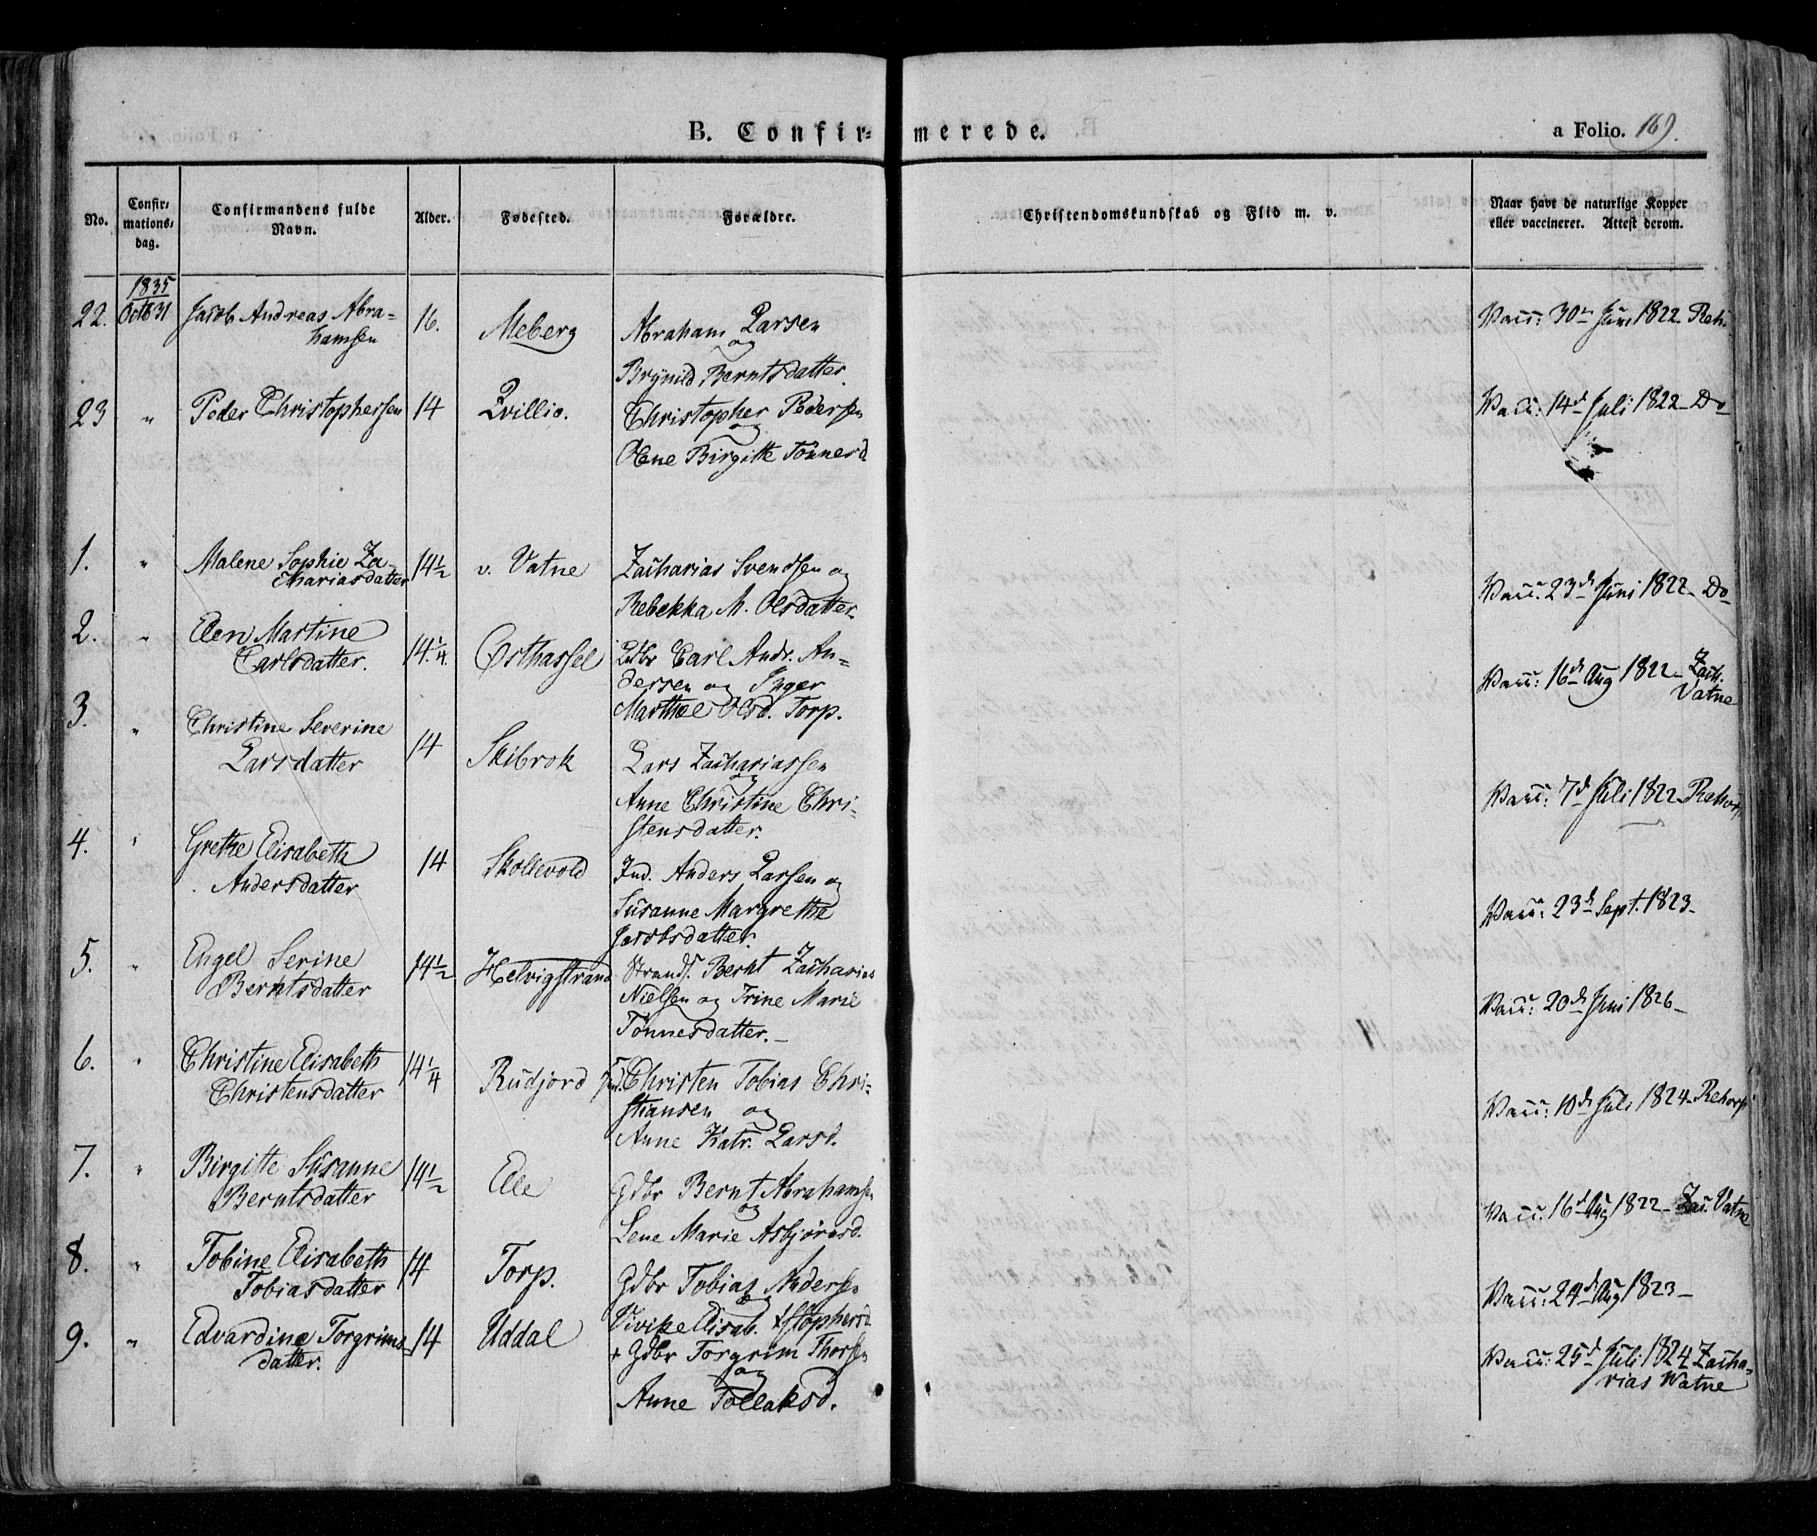 B. Confirmerede.
a Folio. 169.
No.
Confirmations-
dag.
Confirmandens fulde
Navn.
Alder.
Fødested.
Forældre.
Christendomskundskab og Flid m. v.
Naar havt de naturlige Kopper
eller vaccineret. Attest derom.
1835
22. Octb 31 Jacob Andreas Abra-
hamsen
16. Meberg Abraham Larsen
og
Brynild Berntsdatter.
Vacc: 30te Juni 1822 Reh.
23 " Peder Christophersen 14 Qvillio. Christopher Pedersen
og
Olene Birgitte Tönnesd
Vacc: 14d Juli 1822 Do
1. " Malene Sophie Za-
chariasdatter
14½ v. Vatne Zacharias Svendsen og
Rebekka M. Olsdatter.
Vacc: 23d Juni 1822 Do
2. " Elen Martine
Carlsdatter.
14¼ Østhassel Carl Andr. An-
dersen og Inger
Marthe Olsd. Torp.
Vacc: 16d Aug 1822 Zach.
Vatne
3. " Christine Severine
Larsdatter
14 Skibrok Lars Zachariassen
og
Anne Christine Chri-
stensdatter.
Vacc: 7d Juli 1822 Rehorp
4. " Grethe Elisabeth
Andersdatter
14 Skollevold Ind. Anders Larsen og
Susanne Margrethe
Jacobsdatter.
Vacc: 23d Sept. 1823
5. " Engel Serine
Berntsdatter
14½ Helvigstrand Strands. Bernt Zacharias
Nielsen og Trine Marie
Tönnesdatter.
Vacc: 20d Juni 1826
6. " Christine Elisabeth
Christensdatter
14¼ Rudjord Ind. Christen Tobias Chri-
stiansen og
Anne Katr. Larsd.
Vacc: 10d Juli 1824 Rehorp
7. " Birgitte Susanne
Berntsdatter
14½ Elle Gdbr Bernt Abrahamsen
og
Lene Marie Asbjörnsd.
Vacc: 16d Aug 1822 Zac. Vatne
8. " Tobine Elisabeth
Tobiasdatter
14 Torp. Gdbr Tobias Andersen
og
Vivike Elisab. Xstophersd
Vacc: 24d Aug 1823
9. " Edvardine Torgrims-
datter.
14 Uddal + Gdbr Torgrim Thorsen
og
Anne Tollaksd.
Vacc: 25d Juli 1824 Zacha-
rias Watne